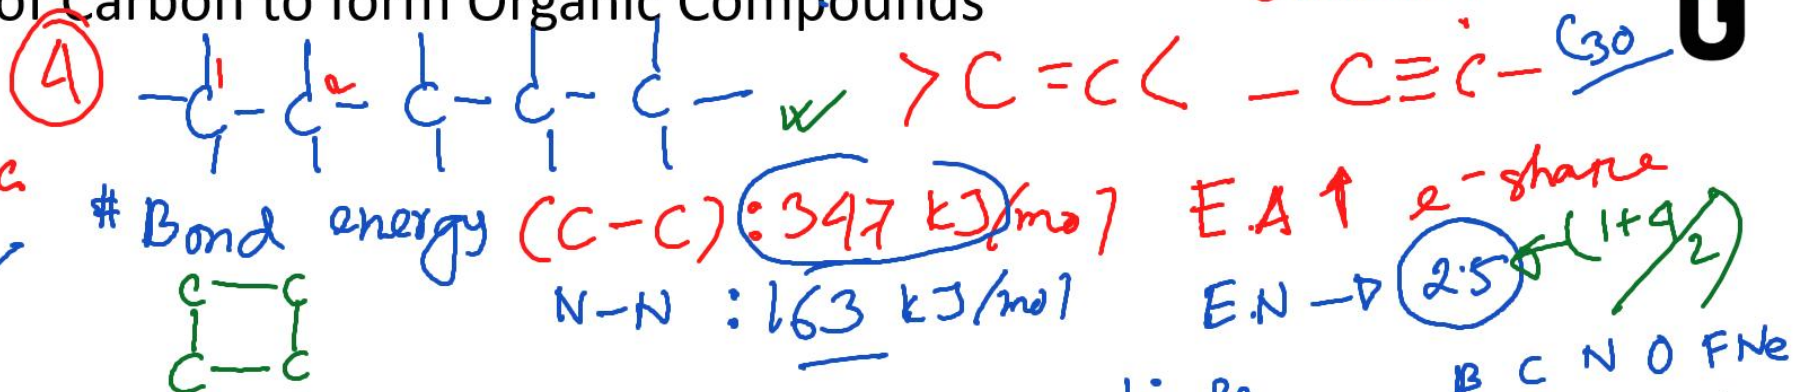 of Carbon to form Organic Compounds
4 1 2
-C-C-C-C-C- >C=C< -C≡C- C30
# Bond energy (C-C) : 347 kJ/mol E.A ↑ e- share
C-C N-N : 163 kJ/mol E.N → 2.5 ← (1+4/2)
C-C B C N O F Ne